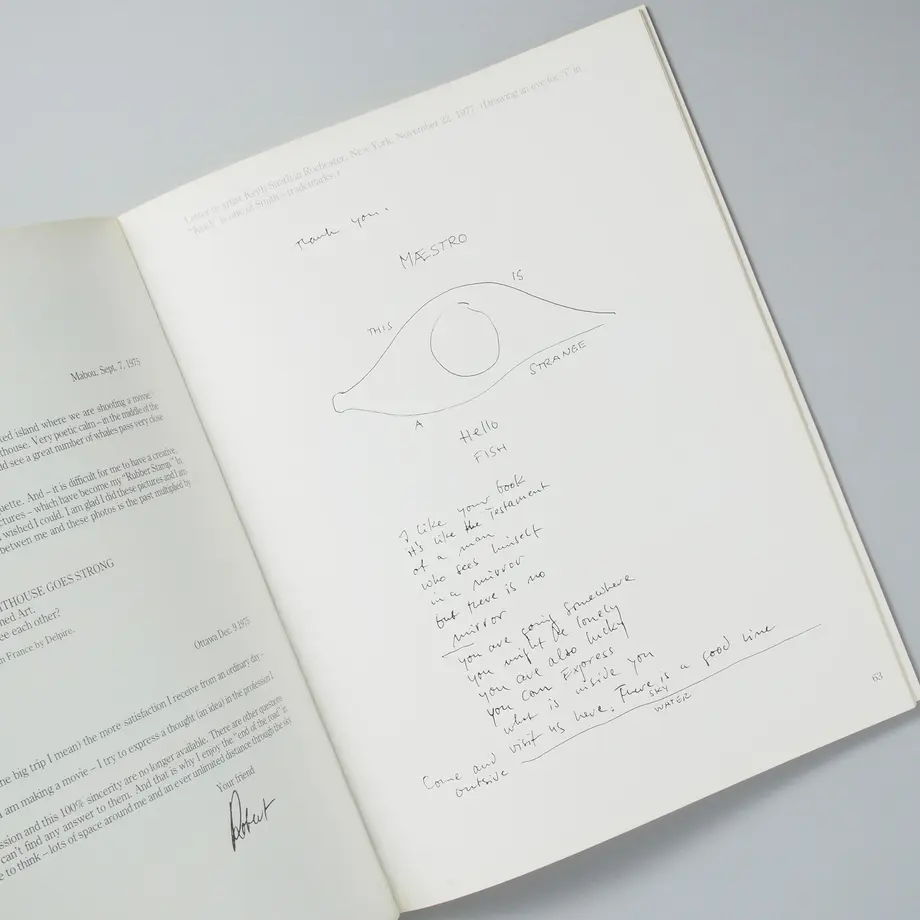 Mabou, Sept. 7, 1975
ked island where we are shooting a movie.
thouse. Very poetic calm – in the middle of the
ld see a great number of whales pass very close
uette. And – it is difficult for me to have a creative
ctures – which have become my "Rubber Stamp." In
I wished I could. I am glad I did these pictures and I am
betwen me and these photos is the past multiplied by
THOUSE GOES STRONG
ned Art.
ee each other?
n France by Delpire.
Ottawa Dec. 9 1975
ne big trip I mean) the more satisfaction I receive from an ordinary day –
I am making a movie – I try to express a thought (an idea) in the profession I
ssion and this 100% sincerity are no longer available. There are other questions
can't find any answer to them. And that is why I enjoy the "end of the road" in
e to think – lots of space around me and an ever unlimited distance through the sky
Your friend
Robert
Letter to artist Keith Smith in Rochester, New York, November 22, 1977. (Drawing an eye for "I" in
is one of Smith's trademarks.)
Thank you.
MÆSTRO
THIS
IS
A
STRANGE
Hello
FISH
I like your book
it's like the Testament
of a man
who sees himself
in a mirror
but there is no
mirror
you are going somewhere
you might be lonely
you are also lucky
you can Express
what is inside you
Come and visit us here. There is a good line
outside
SKY
WATER
63